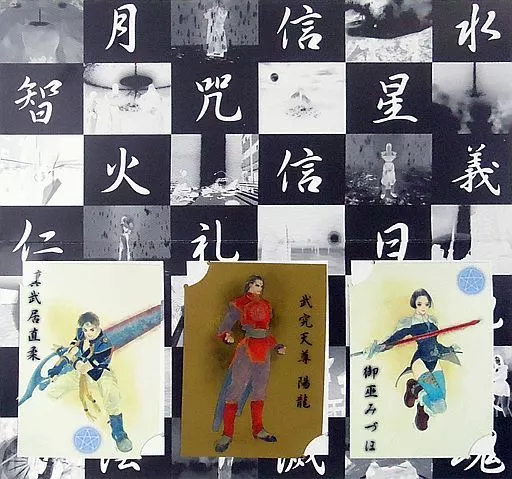 月 信 水
智 咒 星
火 信 義
仁 礼 日
真武居直柔
武究天尊 陽龍
御巫みづほ
法 滅 魂